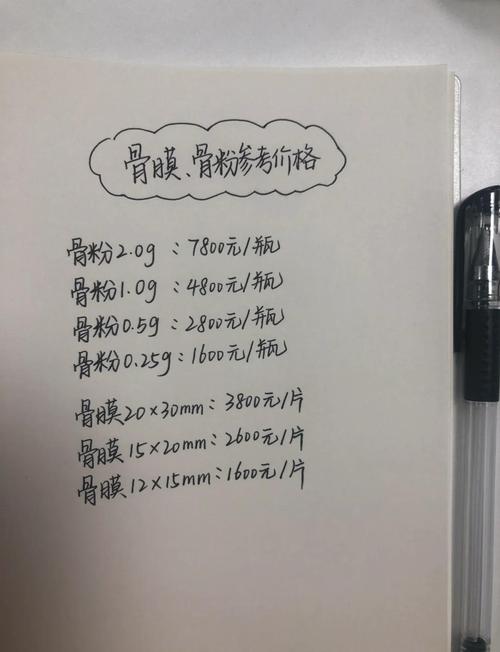 骨膜、骨粉参考价格
骨粉2.0g：7800元/瓶
骨粉1.0g：4800元/瓶
骨粉0.5g：2800元/瓶
骨粉0.25g：1600元/瓶
骨膜20×30mm：3800元/片
骨膜15×20mm：2600元/片
骨膜12×15mm：1600元/片